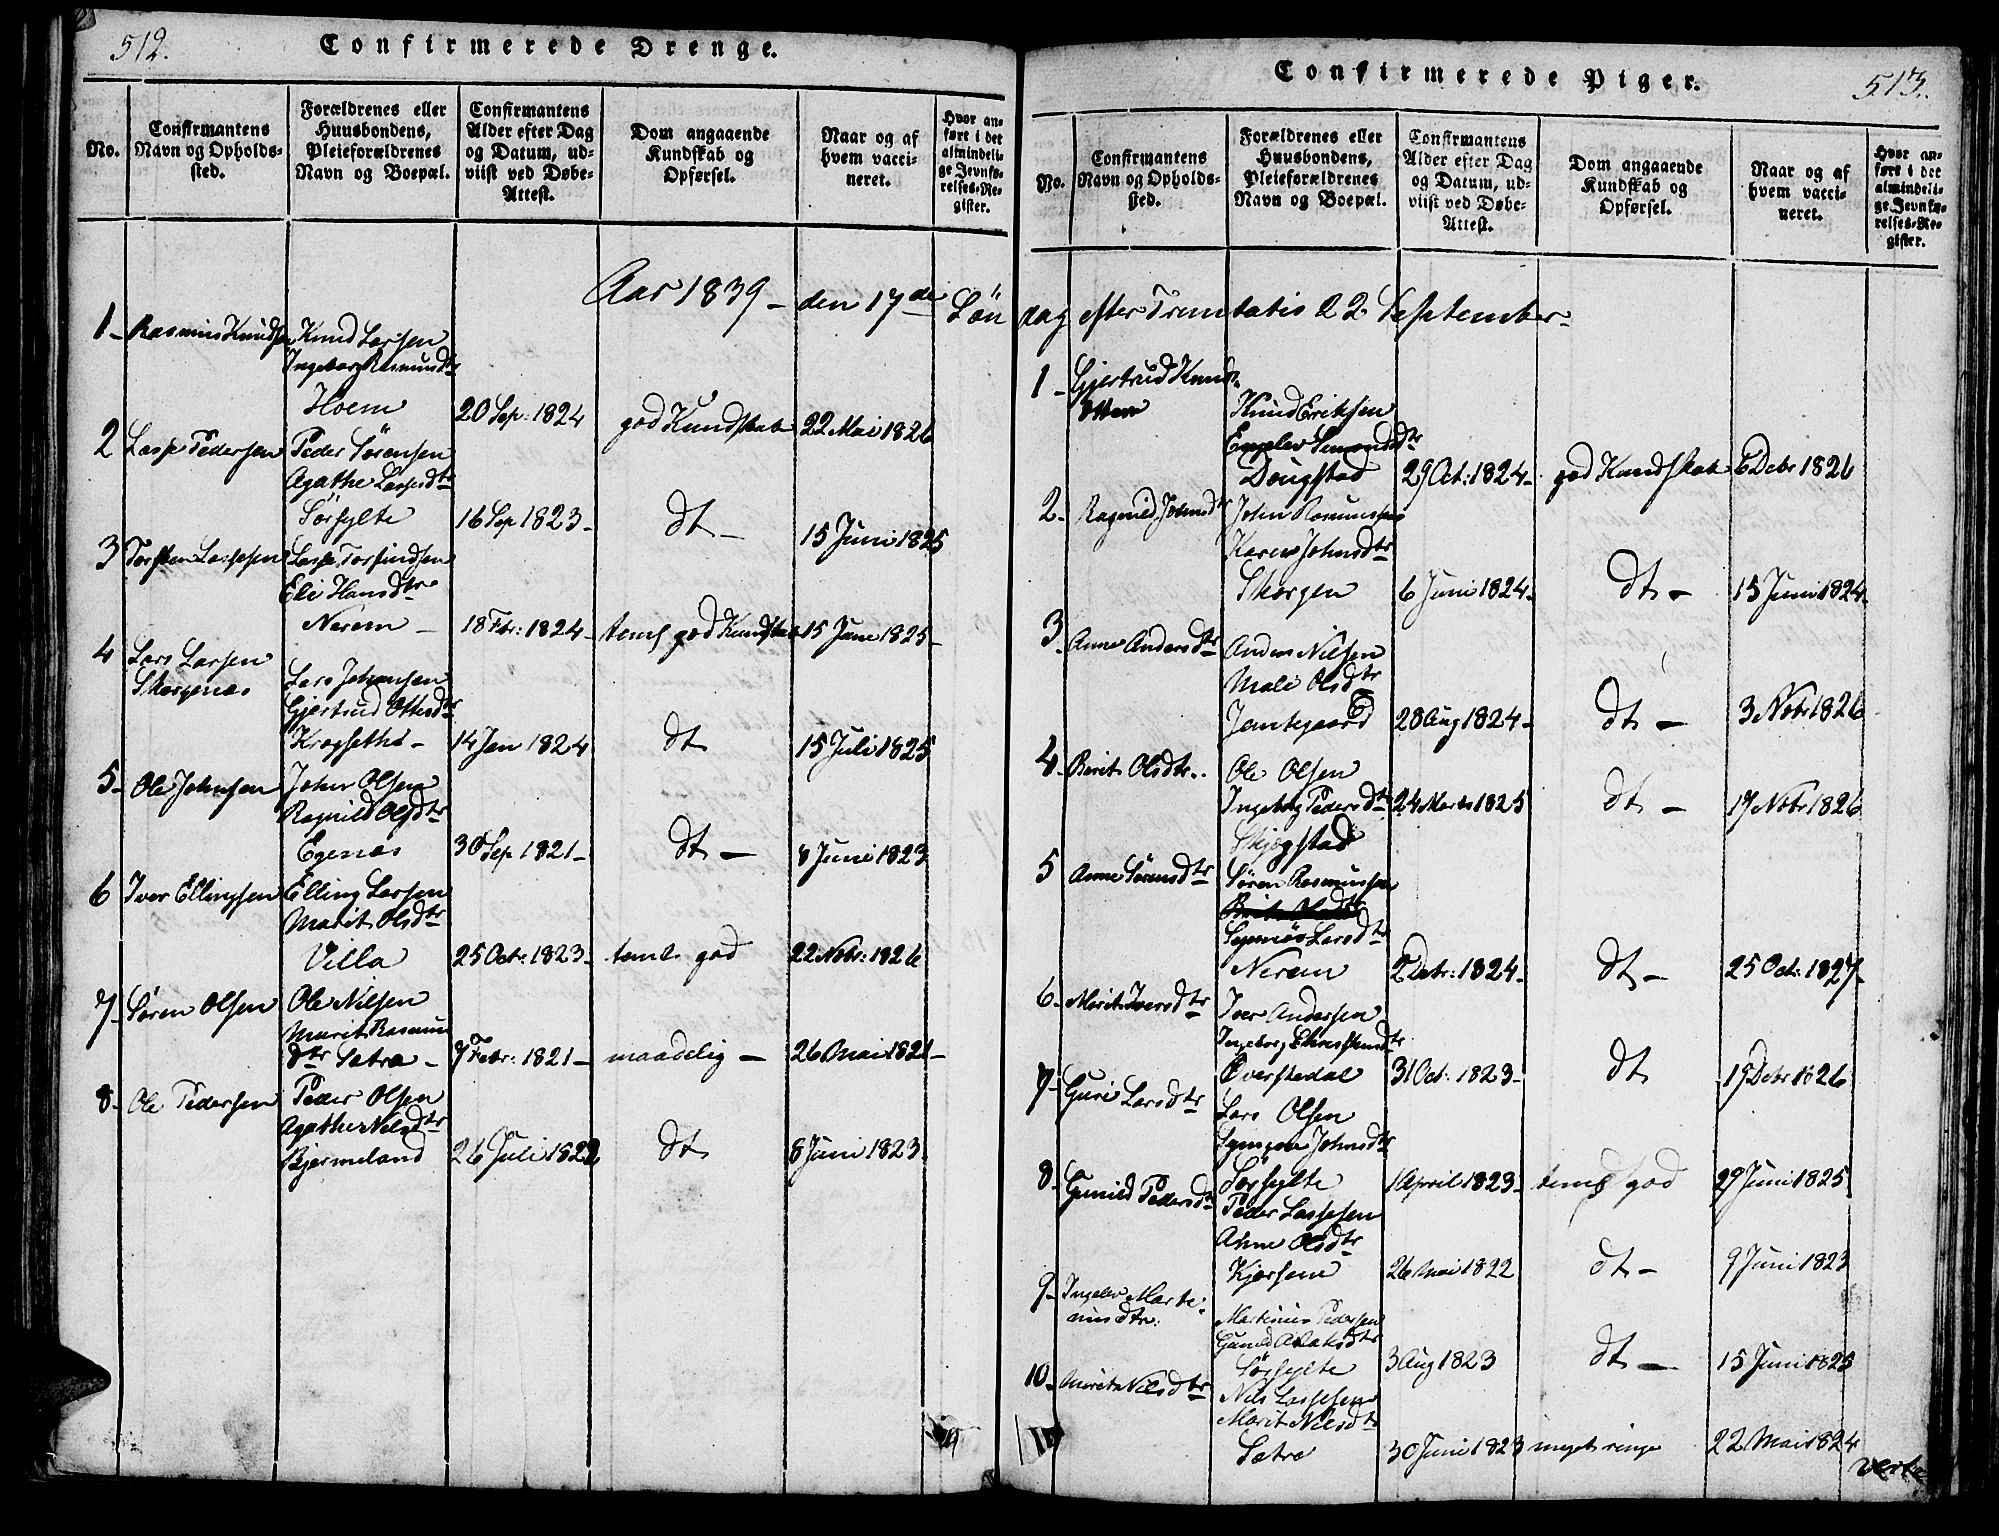 512.
Confirmerede Drenge.
No.
Confirmantens
Navn og Opholds-
sted.
Forældrenes eller
Huusbondens,
Pleieforældrenes
Navn og Boepæl.
Confirmantens
Alder efter Dag
og Datum, ud-
viist ved Døbe-
Attest.
Dom angaaende
Kundskab og
Opførsel.
Naar og af
hvem vacci-
neret.
Hvor an-
ført i det
almindeli-
ge Jevnfø-
relses-Re-
gister.
Aar 1839 - den 17de Søn
1- Rasmus Knudsen Knud Larsen
Ingeborg Rasmusdtr
Hoem 20 Sep: 1824 god Kundskab 22 Mai 1826
2 Lasse Pedersen Peder Sørensen
Agathe Lassesdtr
Sørsylte 16 Sep 1823- dt - 15 Juni 1825
3 Torsten Lassesen Lasse
Eli Hansdtr
Nerem - 18 Fbr: 1824- teml god Kundskab 15 Juni 1825-
4 Lars Larsen
Skorgenæs
Lars Johansen
Gjertrud Ottersdtr
14 Jan 1824 dt 15 Juli 1825
5- Ole Johnsen John Olsen
Ragnild Olsdtr
Egenæs 30 Sep 1821- dt - 8 Juni 1823
6 Iver Ellingsen Elling Larsen
Marit Olsdtr
Villa 25 Oct: 1823- teml god 22 Nobr: 1826
7- Søren Olsen Ole Nilsen
Marit Rasmus
dtr Sætre - 7 Febr: 1821- maadelig - 26 Mai 1821-
8- Ole Pedersen Peder Olsen
Agathe Nilsdtr
Bjermeland 26 Juli 1822 dt 8 Juni 1823
Confirmerede Piger.
513.
No.
Confirmantens
Navn og Opholds-
sted.
Forældrenes eller
Huusbondens,
Pleieforældrenes
Navn og Boepæl.
Confirmantens
Alder efter Dag
og Datum, ud-
viist ved Døbe-
Attest.
Dom angaaende
Kundskab og
Opførsel.
Naar og af
hvem vacci-
neret.
Hvor an-
ført i det
almindeli-
ge Jevnfø-
relses-Re-
gister.
dag efter Trinitatis 22 September
1- Gjertrud Knuds
Knud Eriksen
Dougstad 29 Oct: 1824- god Kundskab 6 Debr 1826
2- Ragnild Johnsdtr John Rasmussen
Karen Johnsdtr
Skorgen 6 Juni 1824- dt - 15 Juni 1824-
3- Anne Andersdtr Anders Nilsen
Mali Olsdtr
Jentegaard 28 Aug 1824- dt - 3 Nobr 1826
4- Berit Olsdtr.. Ole Olsen
Ingeborg Pedersdtr 24 Marts 1825 dt - 17 Nobr 1826
Skjegstad
5 Anne Sørensdtr Søren Rasmussen
Larsdtr
Nerem 2 Debr: 1824- dt - 25 Oct: 1827-
6- Marit Iversdtr Iver Andersen
Ingeborg
Øverstedal 31 Oct: 1823- dt 19 Debr 1826
7- Guri Larsdtr Lars Olsen
Johnsdtr
Sørsylte 1 April 1823- teml god 29 Juni 1825
8- Gunild Pedersdtr Peder Lassesen
Anne Olsdtr
26 Mai 1822 dt - 9 Juni 1823
9- Ingelev Marti-
nusdtr: Martinus Pedersen
Sørsylte 3 Aug 1823 dt - 15 Juni 1825
10- Marit Nilsdtr Nils Lassesen
Marit Nilsdtr
Sætre 30 Juni 1823 meget ringe 22 Mai 1824
verte